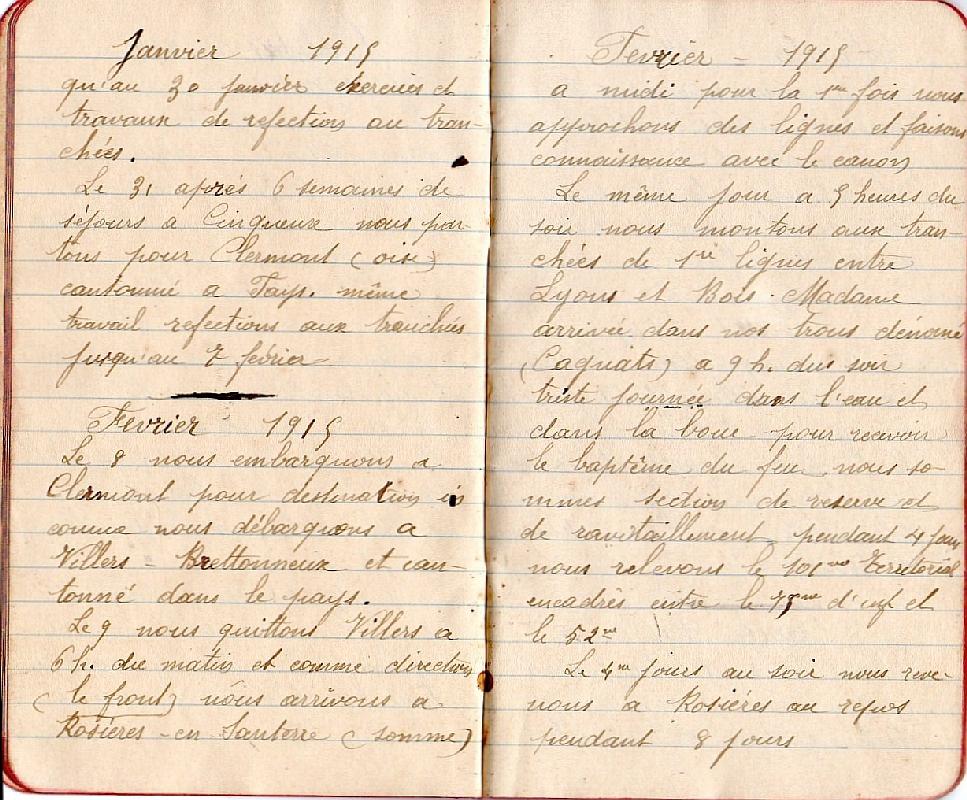 Janvier 1915
qu'au 30 janvier exercices et
travaux de refection au tran-
chées.
Le 31 aprés 6 semaines de
séjours a Cinqueux nous par-
tons pour Clermont (oise)
cantonné a Fays. même
travail refections aux tranchées
jusqu'au 7 février
Fevrier 1915
Le 8 nous embarquons a
Clermont pour destination in
connue nous débarquons a
Villers - Brettonneux et can-
tonné dans le pays.
Le 9 nous quittons Villers a
6 h. du matin et comme direction
(le front) nous arrivons a
Rosiéres - en Santerre (somme)
Fevrier - 1915
a midi pour la 1re fois nous
approchons des lignes et faisons
connaissance avec le canon
Le même jour a 5 heures du
soir nous montons aux tran-
chées de 1re lignes entre
Lyons et Bois - Madame
arrivée dans nos trous dénomé
(Cagnats) a 9 h. dus soir
triste journée dans l'eau et
dans la boue pour recevoir
le baptême du feu nous so-
mmes section de reserve et
de ravitaillement pendant 4 jours
nous relevons le Territorial
encadrés entre le d'inf et
le 52me
Le 4me jours au soir nous reve-
nons a Rosiéres au repos
pendant 8 jours